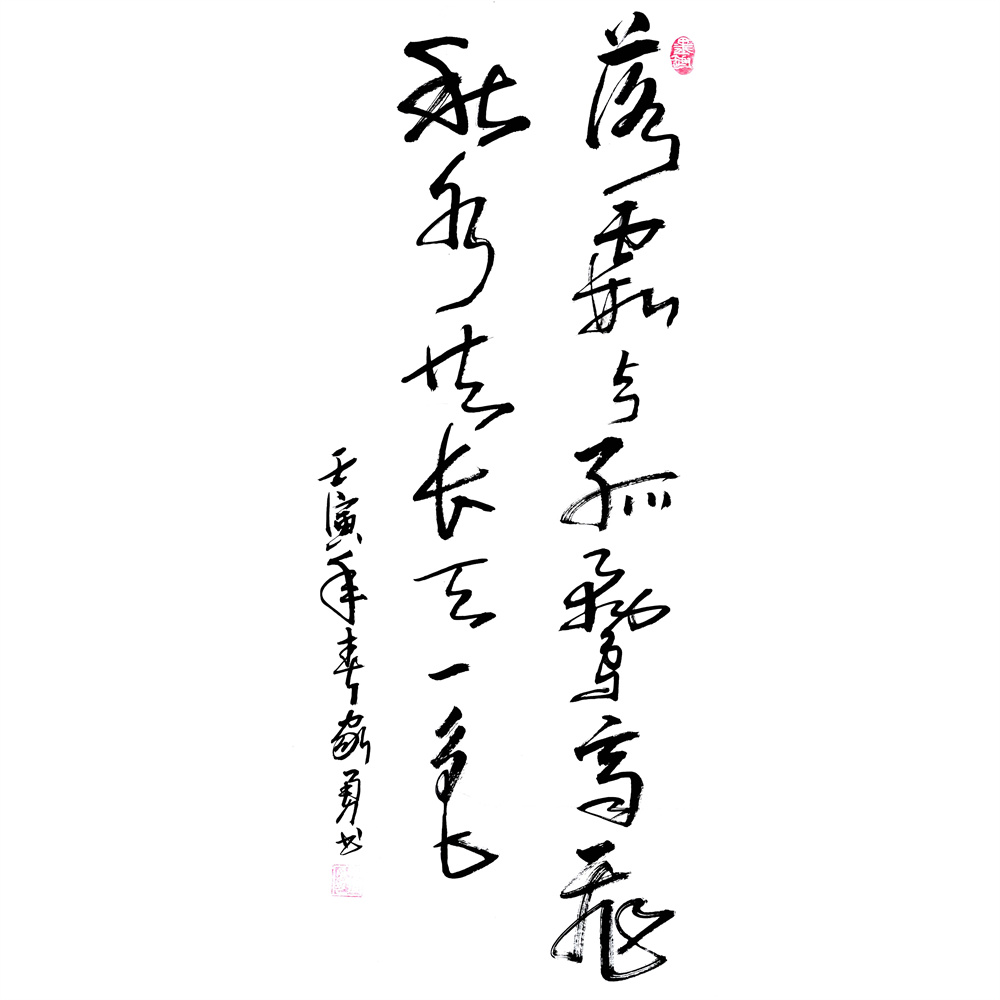 落霞与孤鹜齐飞
秋水共长天一色
壬寅年春家勇书